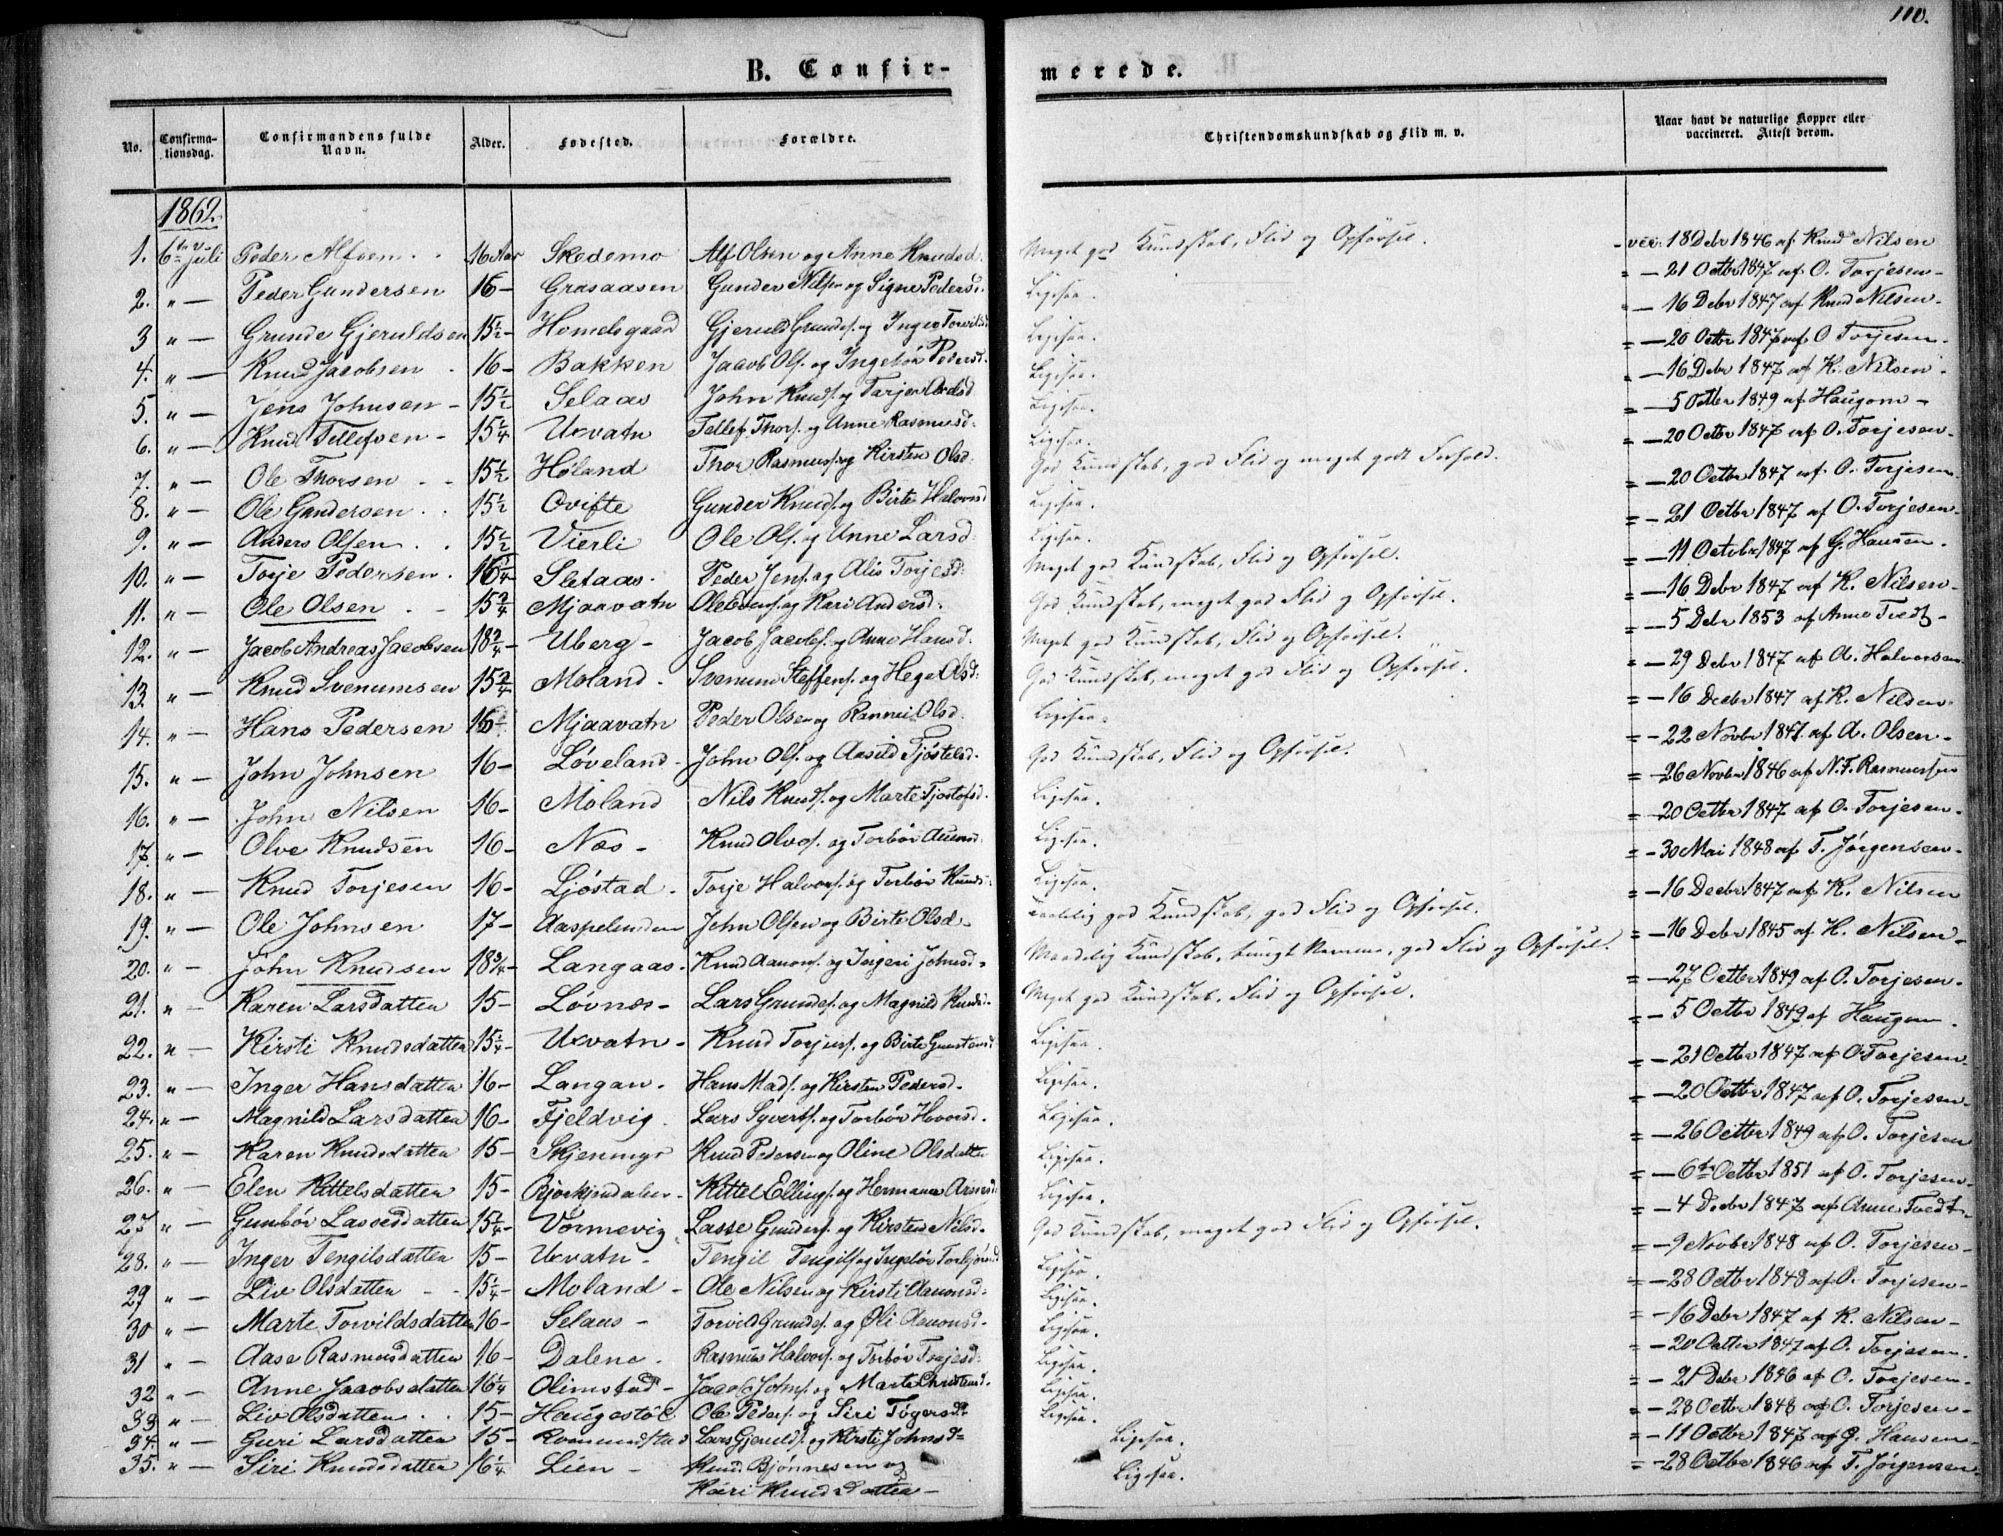 110.
B. Confirmerede.
No. Confirmationsdag. Confirmandens fulde Navn. Alder. Fødested. Forældre. Christendomskundskab og Flid m. v. Naar havt de naturlige Kopper eller vaccineret. Attest derom.
1862.
1. 6te Juli Peder Alfsen 16 Aar Skedemo Alf Olsen og Anne Knudsd. Meget god Kundskab, Flid og Opførsel. vcc. 18 Debr 1846 af Knud Nilsen
2. " — Peder Gundersen 16 - Grasaasen Gunder Nilsen og Signe Pedersd. Ligesaa. = — 21 Octbr 1847 af O. Torjesen -
3 " — Grunde Gjeruldsen 15½ - Homdsgaard Gjeruld Grundes. og Inger Torvildsd Ligesaa. = — 16 Debr 1847 af Knud Nilsen.
4. " — Knud Jacobsen 16 - Bakken Jacob Ols. og Ingebor Pedersd. Ligesaa. = — 20 Octbr 1847 af O Torjesen.
5. " — Jens Johnsen - 15½ Selaas John Knuds. og Tarjer Axelsd Ligesaa. = — 16 Debr 1847 af K. Nilsen
6. " — Knud Tellefsen - 15¼ Uxvatn Tellef Thors. og Anne Rasmusd. Ligesaa. = — 5 Octbr 1849 af Haugom -
7. " — Ole Thorsen 15½ Høland Thor Rasmuss. og Kirsten Olsd. God Kundskab, god Flid og meget godt Forhold. = — 20 Octbr 1847 af O. Torjesen.
8. " — Ole Gundersen 15½ Qvifte Gunder Knuds. og Birte Halvorsd Ligesaa. = — 20 Octbr 1847 af O. Torjesen
9. " — Anders Olsen 15½ Vierli Ole Ols. og Anne Larsd. Ligesaa. = — 21 Octbr 1847 af O. Torjesen.
10. " — Torje Pedersen. 16¼ Sletaas. Peder Jens. og Alis Torjesd: Meget god Kundskab, Flid og Opførsel. = — 11 Octobr 1847 af G. Hansen.
11. " — Ole Olsen 15¾ Mjaavatn Ole Evens. og Kari Andersd: God Kundskab, meget god Flid og Opførsel. = — 16 Debr 1847 af K. Nilsen.
12. " — Jacob Andreas Jacobsen 18¾ - Uberg - Jacob Jacobs. og Anne Hansd. Meget god Kundskab, Flid og Opførsel. = — 5 Debr 1853 af Anne Tvedt -
13. " — Knud Svenumsen 15¾ Moland. Svenum Steffens. og Hege Olsd: God Kundskab, meget god Flid og Opførsel. = — 29 Debr 1847 af A. Halvorsen
14. " — Hans Pedersen 16 Mjaavatn Peder Olsen og Rannei Olsd. Ligesaa. = — 16 Decbr 1847 af K. Nilsen.
15. " — John Johnsen 16 - Løveland - John Ols. og Aasild Tjøstelsd. God Kundskab, Flid og Opførsel. = — 22 Novbr 1847 af A. Olsen -
16. " — John Nilsen 16 - Moland Nils Knuds. og Marte Tjostofsd. Ligesaa. = — 26 Novbr 1846 af N. F. Rasmussen
17. " — Olve Knudsen 16 - Næs - Knud Olves. og Torbør Aanonsd: Ligesaa. = — 20 Octbr 1847 af O. Torjesen.
18. " — Knud Torjesen 16 - Ljøstad - Torje Halvors. og Torbør Knuds: Ligesaa. = — 30 Mai 1848 af T. Jørgensen -
19. " — Ole Johnsen 17 - Aaspelunden John Olsen og Birte Olsd - god Kundskab, god Flid og Opførsel. = — 16 Decbr 1847 af K. Nilsen
20. " — John Knudsen 18¾ - Langaas - Knud Aanons. og Ingeri Johnsd - Maadelig Kundskab, tungt Nemme, god Flid og Opførsel. = — 16 Debr 1845 af H. Nilsen -
21. " — Karen Larsdatter 15 - Løvnæs - Lars Grundes. og Magnild Knuds - Meget god Kundskab, Flid og Opførsel. = — 27 Octbr 1849 af O. Torjesen -
22. " — Kirsti Knudsdatter 15¼ - Uxvatn - Knud Torjus. og Birte Gunstensd Ligesaa. = — 5 Octbr 1849 af Haugom.
23. " — Inger Hansdatter 16 - Langan - Hans Mads. og Kirsten Pedersd. Ligesaa. = — 21 Octbr 1847 af O Torjesen.
24. " — Magnild Larsdatter 16 - Fjeldvig. Lars Syverts. og Torbør Hvorsd. Ligesaa. = — 20 Octbr 1847 af O. Torjesen -
25. " — Karen Knudsdatter 15 - Skjennigs Knud Pedersen og Oline Olsdatter Ligesaa. = — 26 Octbr 1849 af O. Torjesen
26. " — Elen Kittelsdatter 15 - Bjørkjendalen - Kittel Ellings. og Hermana Arnesd. Ligesaa. = — 6te Octbr 1851 af O. Torjesen
27 " — Gunbør Lassesdatter 15¼ - Vormevig Lasse Gunders. og Kirsten Nilsd. God Kundskab, meget god Flid og Opførsel. = — 4 Decbr 1847 af Anne Tvedt -
28. " — Inger Tengilsdatter 15 - Uxvatn - Tengil Tengils. og Ingebør Torbjørnsd Ligesaa. = — 9 Novbr 1848 af O. Torjesen -
29 " — Liv Olsdatter - 15¼ - Moland - Ole Nilsen og Kirsti Aanonsd - Ligesaa. = — 28 Octbr 1848 af O. Torjesen -
30 " — Marte Torvildsdatter 16 - Selaas - Torvild Grundes. og Øli Aanonsd - Ligesaa. = — 16 Debr 1847 af K. Nilsen -
31 " — Aase Rasmusdatter 16 - Dalene - Rasmus Halvors. og Torbør Torjesd: Ligesaa. = — 20 Octbr 1847 af O. Torjesen.
32 " — Anne Jacobsdatter 16¼ Olimstad - Jacob Johns. og Marte Christensd. Ligesaa. = — 21 Debr 1846 af O. Torjesen -
33 " — Liv Olsdatter 15 - Haugestøl Ole Peders. og Siri Tøgersd - Ligesaa. = — 28 Octbr 1848 af O. Torjesen -
34. " — Guri Larsdatter 15 - Rommundstad Lars Gjerulds. og Kirsti Johnsd = Ligesaa. = — 11 Octbr 1847 af G. Hansen -
35. " — Siri Knudsdatter 16¼ Lien - Knud Bjønnesen og Ligesaa. = — 28 Octbr 1846 af T. Jørgensen -
Kari Knudsdatter -